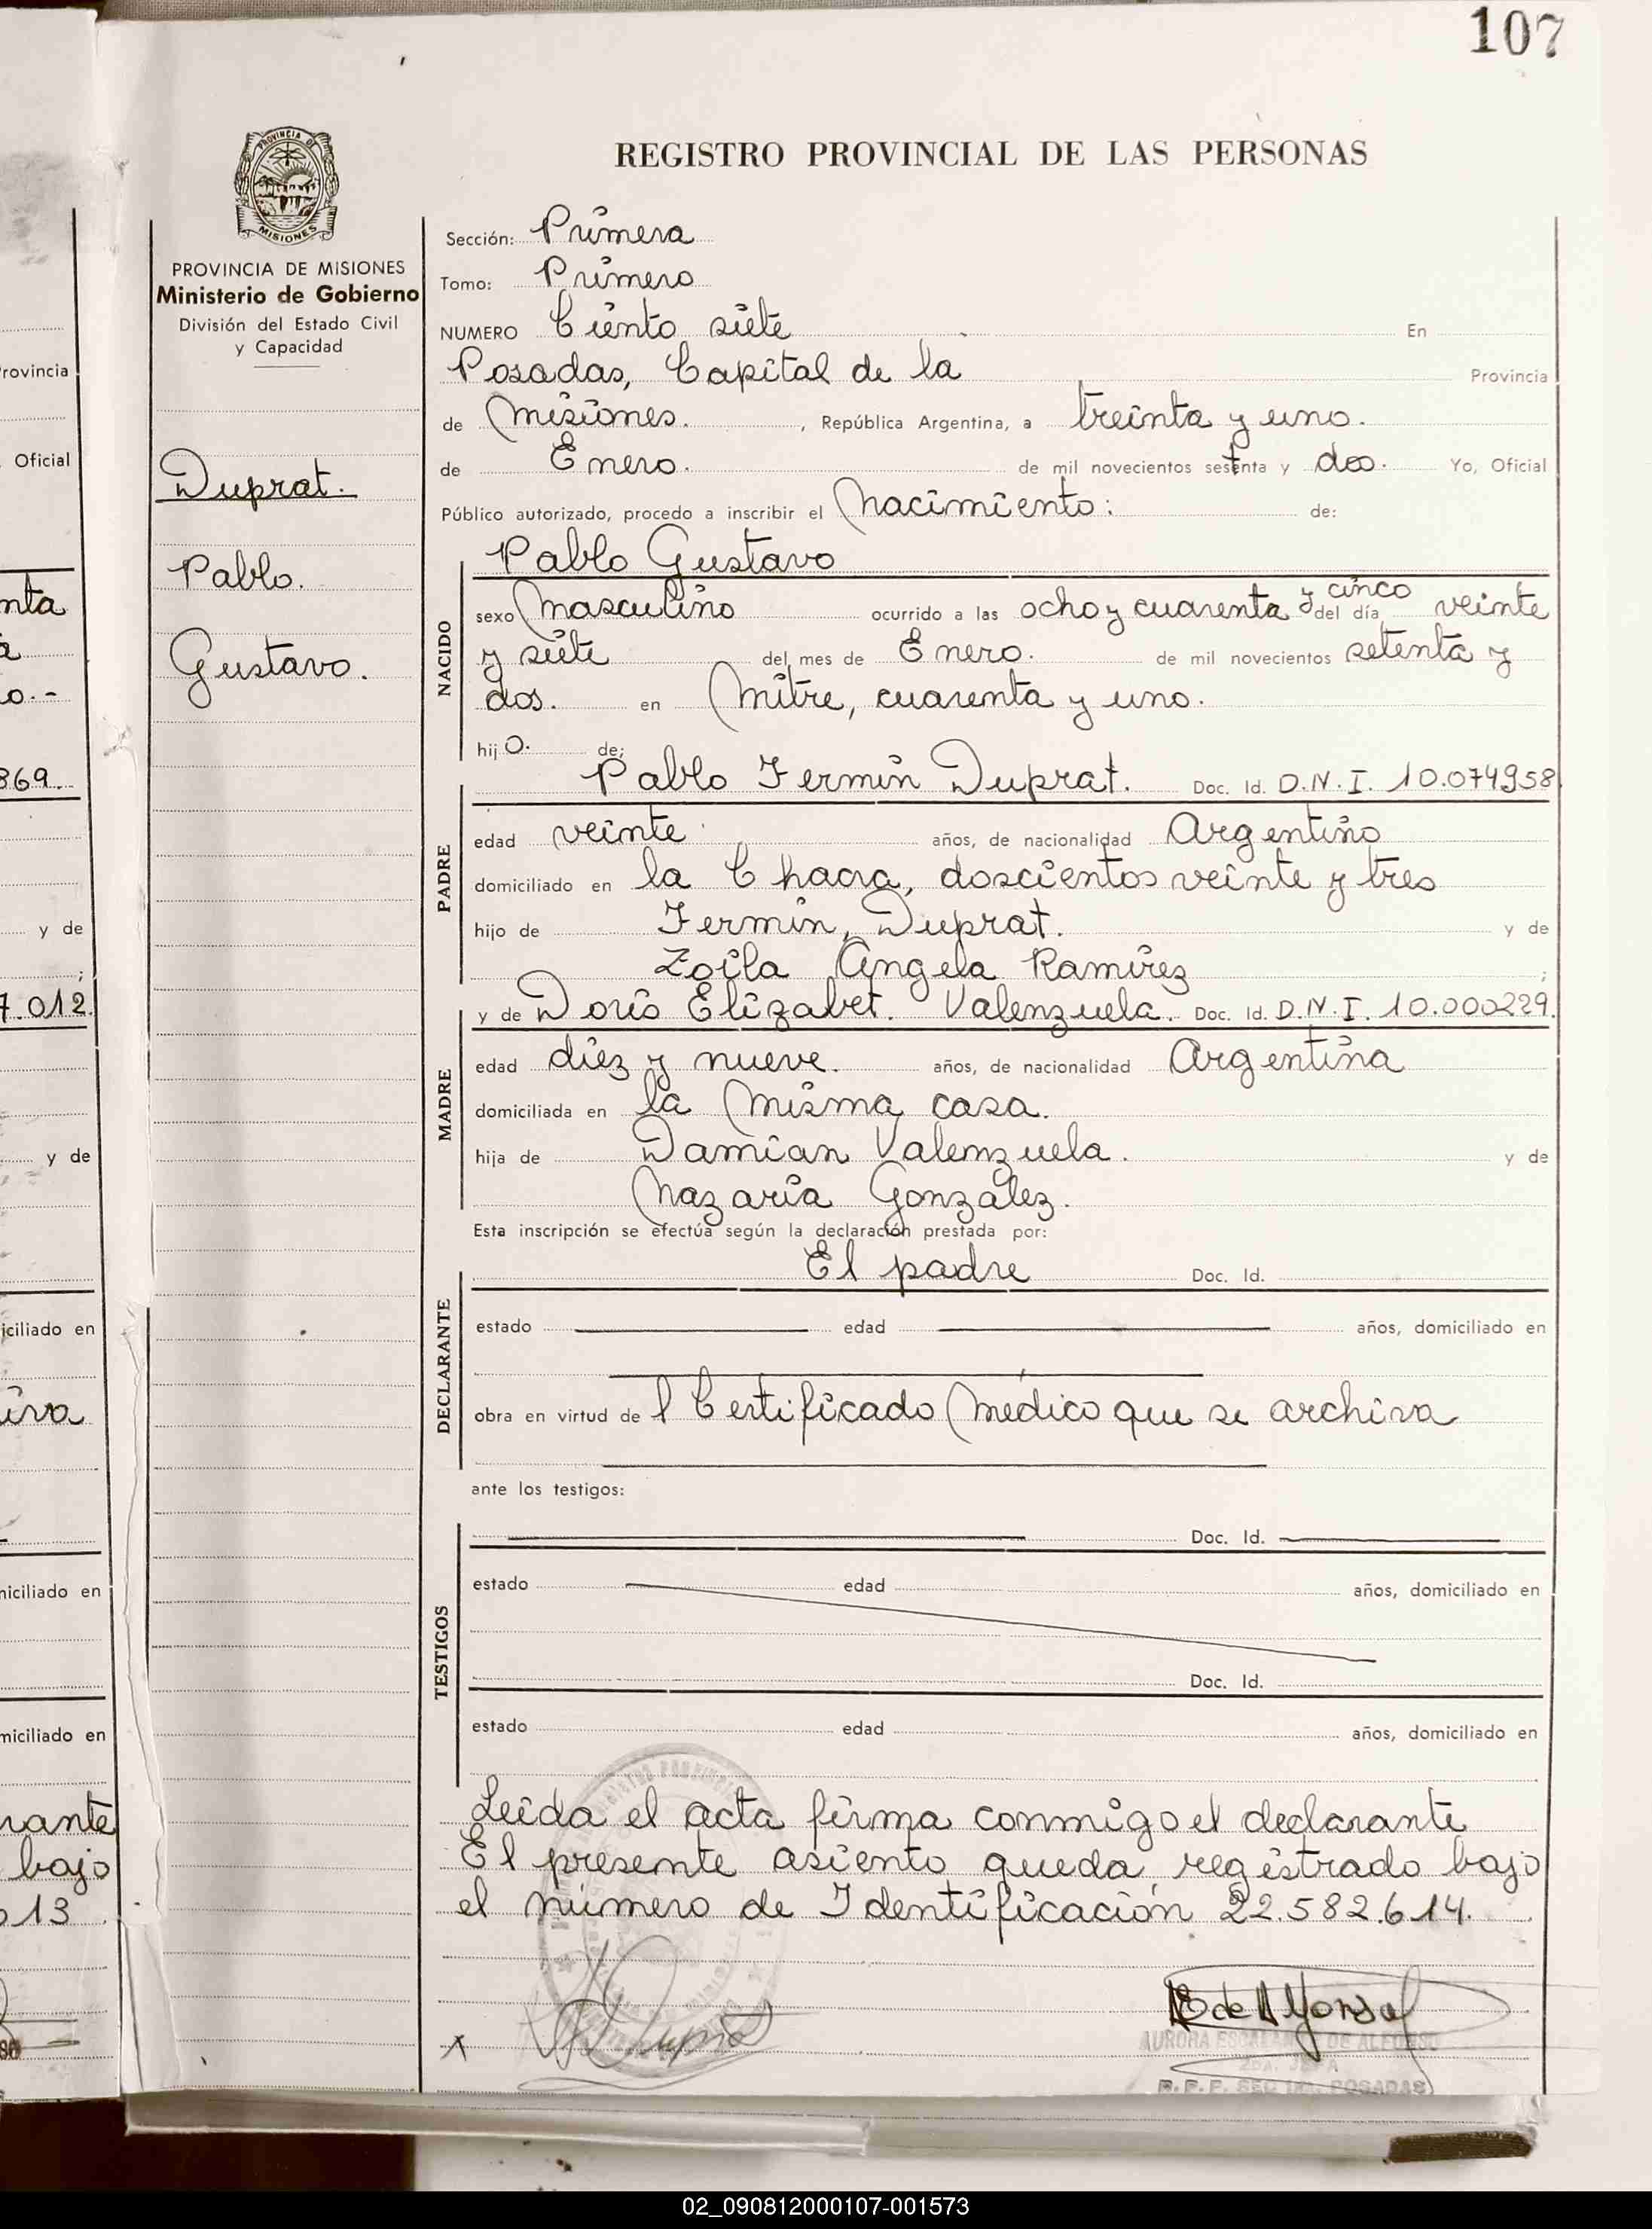 107
REGISTRO PROVINCIAL DE LAS PERSONAS
PROVINCIA DE
MISIONES
PROVINCIA DE MISIONES
Ministerio de Gobierno
División del Estado Civil
y Capacidad
Duprat.
Pablo.
Gustavo.
Sección: Primera
Tomo: Primero
NUMERO Ciento siete En
Posadas, Capital de la Provincia
de Misiones. , República Argentina, a treinta y uno.
de Enero. de mil novecientos setenta y dos. Yo, Oficial
Público autorizado, procedo a inscribir el Nacimiento: de:
NACIDO
Pablo Gustavo
sexo Masculino ocurrido a las ocho y cuarenta y cinco del día veinte
y siete del mes de Enero. de mil novecientos setenta y
dos. en Mitre, cuarenta y uno.
hijo. de;
PADRE
Pablo Fermín Duprat. Doc. Id. D.N.I. 10.074958
edad veinte años, de nacionalidad Argentino
domiciliado en la Chacra, doscientos veinte y tres
hijo de Fermín, Duprat. y de
Zoila Angela Ramírez ;
MADRE
y de Doris Elizabet. Valenzuela. Doc. Id. D.N.I. 10.000229.
edad diez y nueve. años, de nacionalidad Argentina
domiciliada en la misma casa.
hija de Damian Valenzuela. y de
Nazaria González.
Esta inscripción se efectúa según la declaración prestada por:
DECLARANTE
El padre Doc. Id.
estado edad años, domiciliado en
obra en virtud de l Certificado Médico que se archiva
ante los testigos:
TESTIGOS
Doc. Id.
estado edad años, domiciliado en
Doc. Id.
estado edad años, domiciliado en
Leída el acta firma conmigo el declarante
El presente asiento queda registrado bajo
el número de Identificación 22.582.614.
AURORA DE ALFONSO
R.P.P. SEC POSADAS
rovincia
Oficial
nta
a
o.-
869.
y de
;
7.012.
y de
iciliado en
iva
niciliado en
miciliado en
rante
bajo
013
02_090812000107-001573